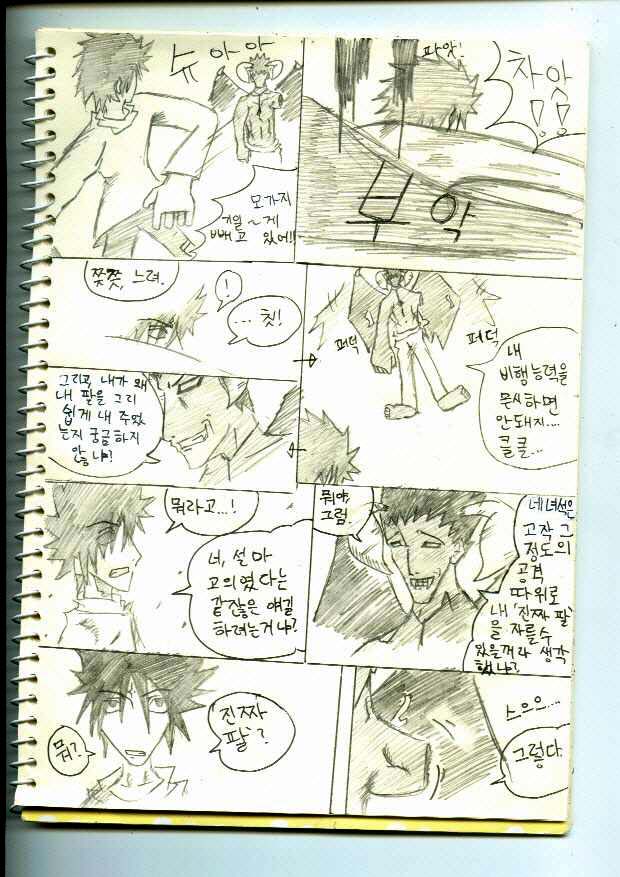 슈아아
모가지
길~게
빼고 있어!!
파앗!
촤앗!!
부악
쯧쯧, 느려.
!
... 칫!
퍼덕
퍼덕
내
비행능력을
무시하면
안돼지...
클클...
그리고, 내가 왜
내 팔을 그리
쉽게 내 주었
는지 궁금하지
않나?
뭐라고...!
너, 설마
고의였다는
같잖은 얘길
하려는거냐?
뭐야,
그럼.
네녀석은
고작 그
정도의
공격
따위로
내 '진짜 팔'
을 자를수
있을꺼라 생각
했냐?
뭐?
'진짜
팔'?
스으으...
그렇다.